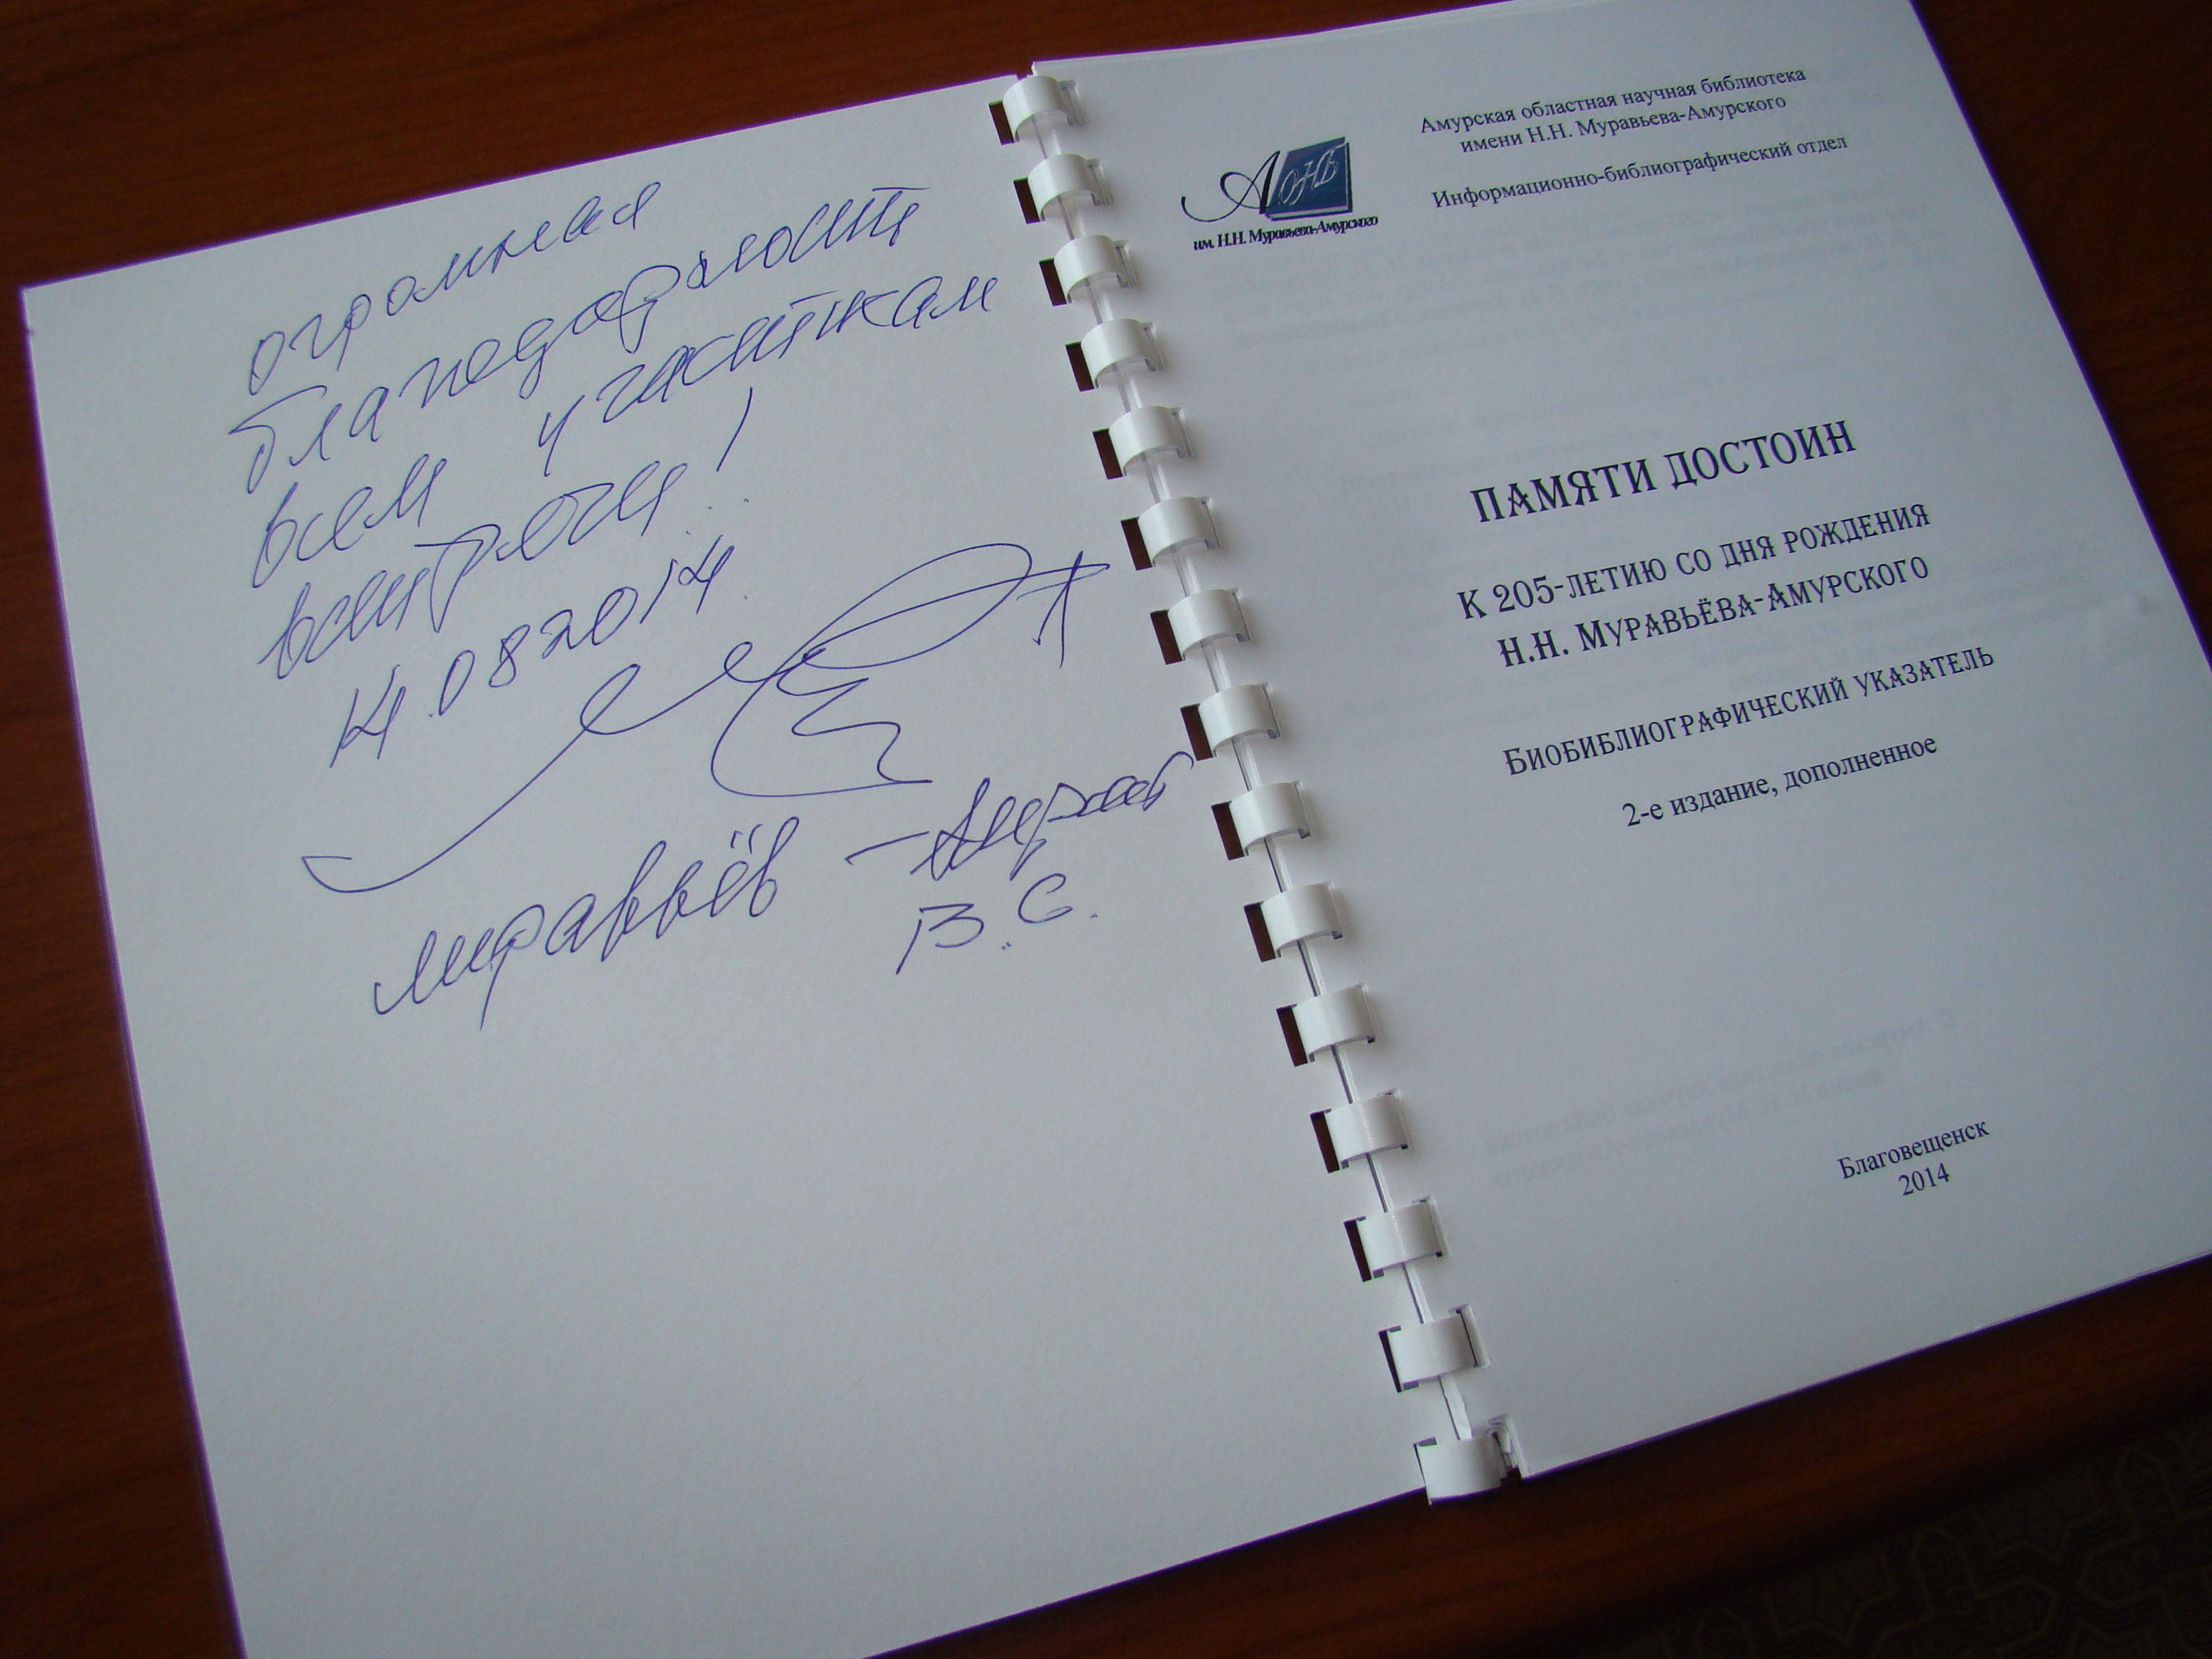 огромная
благодарность
всем участникам
встречи!
14.08 2014
Муравьёв -
В. С.
А ОНБ
им. Н.Н. Муравьева-Амурского
Амурская областная научная библиотека
имени Н.Н. Муравьева-Амурского
Информационно-библиографический отдел
ПАМЯТИ ДОСТОИН
К 205-ЛЕТИЮ СО ДНЯ РОЖДЕНИЯ
Н.Н. МУРАВЬЁВА-АМУРСКОГО
БИОБИБЛИОГРАФИЧЕСКИЙ УКАЗАТЕЛЬ
2-е издание, дополненное
Благовещенск
2014